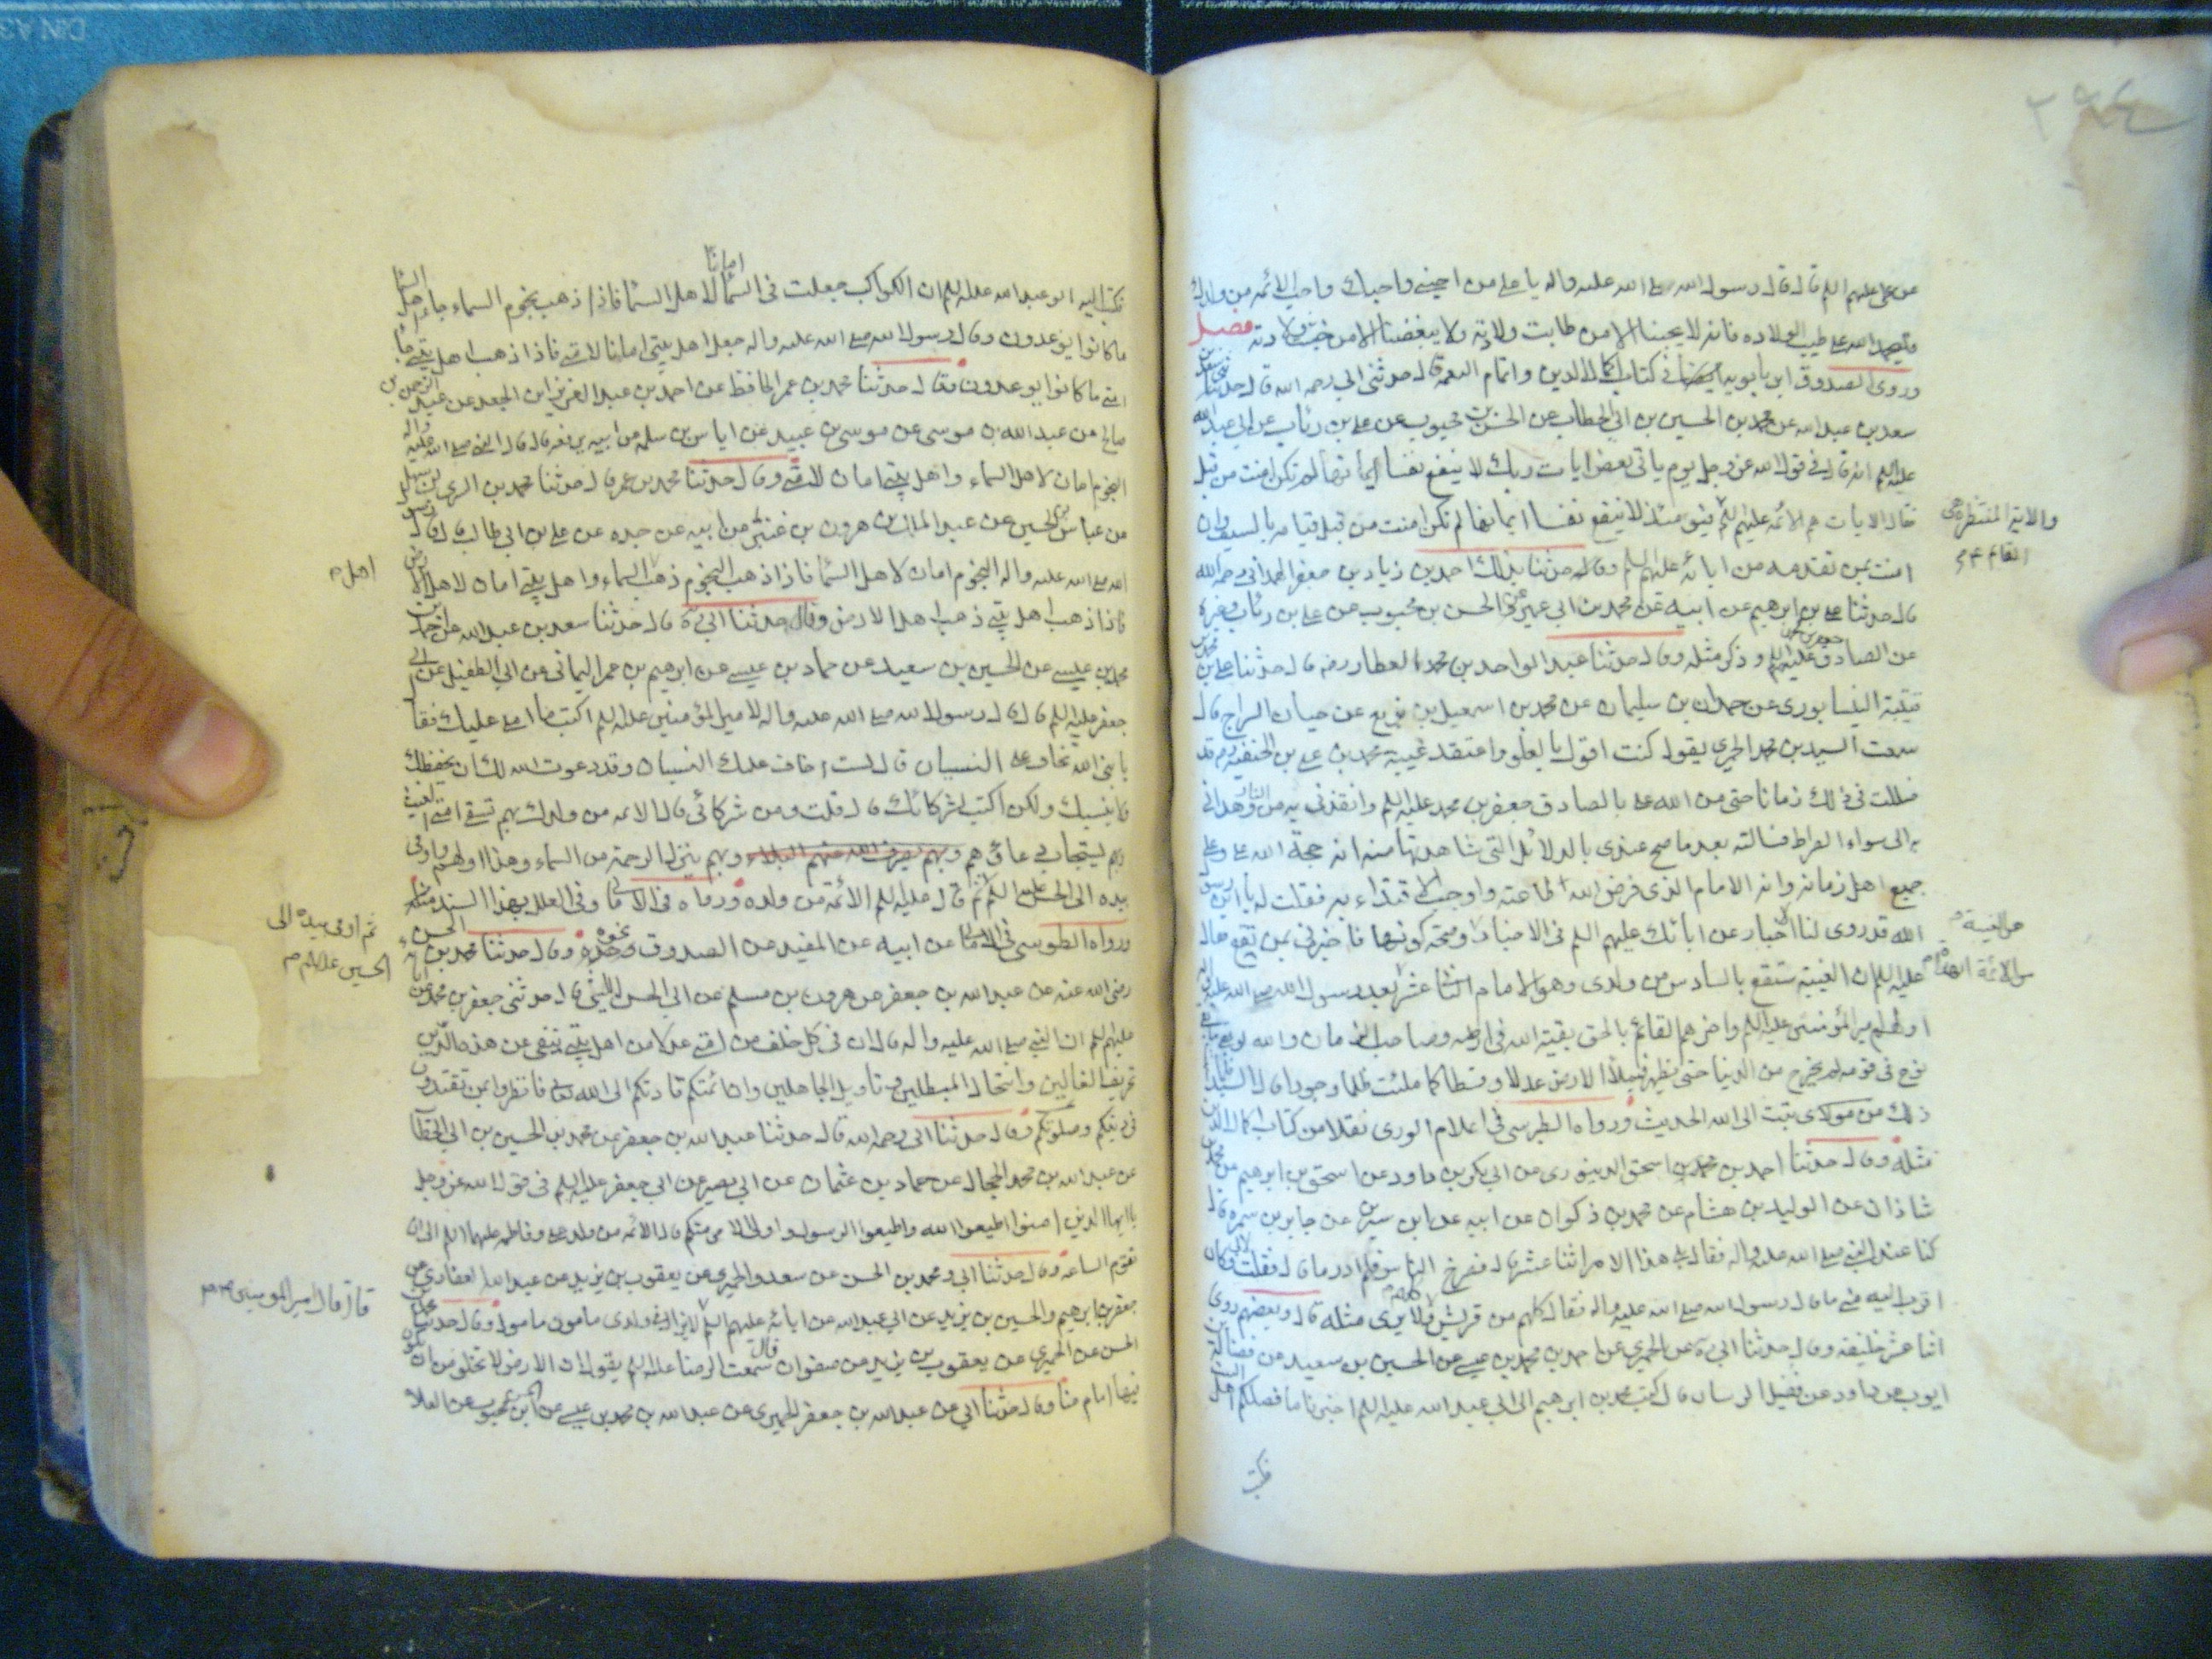 ٢٩٤
عن علي عليهم اللم قال قال رسول الله صلے الله عليه واله يا علے من احبنے واحبك واحب الائمه من ولدك
فليحمد الله علے طيب الولاده فانه لا يحبنا الا من طابت ولادته ولا يبغضنا الا من خبث ولادته فصل
وروى الصدوق ابن بابويه ايضا فى كتاب اكمال الدين واتمام النعمه قال حدثنى ابي رحمه الله قال حدثنا
سعد بن عبد الله عن محمد بن الحسين بن ابي الخطاب عن الحسن بن محبوب عن علے بن رئاب عن ابي عبد الله
عليه اللم انه قال فى قول الله عز وجل يوم ياتى بعض ايات ربك لا ينفع نفسا ايمانها لم تكن امنت من قبل
فقال الايات هم الائمه عليهم اللم فيومئذ لا ينفع نفسا ايمانها لم تكن امنت من قبل قيامه بالسيف وان
والاية المنتظره هى
القائم ع م
امنت بمن تقدمه من ابائه عليهم السلم وقال حدثنا بذلك احمد بن زياد بن جعفر الهمدانى رحمه الله
قال حدثنا علے بن ابرهيم عن ابيه عن محمد بن ابي عمير عن الحسن بن محبوب عن علے بن رئاب وغيره
عن الصادق جعفر بن محمد عليهما اللم وذكر مثله وقال حدثنا عبد الواحد بن محمد العطار رضه قال حدثنا علے بن محمد بن
قتيبة النيسابورى عن حمدان بن سليمان عن محمد بن اسمعيل بن بزيع عن حيان السراج قال
سمعت السيد بن محمد الحميرى يقول كنت اقول بالغلو واعتقد غيبة محمد بن علے بن الحنفيه قد
ضللت فى ذلك زمانا حتى من الله علے بالصادق جعفر بن محمد عليه اللم وانقذنى به من النار وهدانى
به الى سواء الصراط فسالته بعد ما صح عندى بالدلائل التى شاهدتها منه انه حجة الله علے وعلى
جميع اهل زمانه وانه الامام الذى فرض الله طاعته واوجب الاقتداء به فقلت له يا ابن رسول
الله قد روى لنا اخبار عن ابائك عليهم اللم فى الغيبة وصحة كونها فاخبرنى بمن تقع فقال
عليه اللم ان الغيبة ستقع بالسادس من ولدى وهو الامام الثانى عشر بعد رسول الله صلے الله عليه واله
فى الغيبة م
من الائمة الهداة م
اولهم امير المؤمنين عليه اللم واخرهم القائم بالحق بقية الله فى ارضه وصاحب الزمان والله لو بقى
نوح فى قومه لم يخرج من الدنيا حتى يظهر فيملأ الارض عدلا وقسطا كما ملئت ظلما وجورا قال السيد فلما سمعت
ذلك من مولاى تبت الى الله الحديث ورواه الطبرسى فى اعلام الورى نقلا من كتاب اكمال الدين
مثله وقال حدثنا احمد بن محمد بن اسحق الدينورى عن ابي بكر بن داود عن اسحق بن ابرهيم عن محمد بن
شاذان عن الوليد بن هشام عن محمد بن ذكوان عن ابيه عن ابن سيرين عن جابر بن سمره قال
كنا عند النبى صلے الله عليه واله فقال يلى هذا الامر اثنا عشر قال فصرخ الناس فلم ادر ما قال فقلت لابى وكان
اقرب اليه منى ما قال رسول الله صلے الله عليه واله فقال كلهم من قريش وكلهم لا يرى مثله قال وبعضهم روى
اثنا عشر خليفة وقال حدثنا ابي ره عن الحميرى عن احمد بن محمد بن عيسے عن الحسين بن سعيد عن فضالة بن
ايوب عن داود عن فضيل الرسان قال كتب محمد بن ابرهيم الى ابي عبد الله عليه اللم اخبرنا ما فضلكم اهل البيت
فكتب
فكتب اليه ابو عبد الله عليه اللم ان الكواكب جعلت فى السما امانا لاهل السما فاذا ذهب نجوم السماء جاء اهل السما
ما كانوا يوعدون وقال رسول الله صلے الله عليه واله جعل اهل بيتى امانا لامتى فاذا ذهب اهل بيتى جاء
امتى ما كانوا يوعدون وقال حدثنا محمد بن عمر الحافظ عن احمد بن عبد العزيز ابن الجعد عن عبد الرحمن بن
صالح عن عبد الله بن موسى عن موسى بن عبيد عن اياس بن سلمه عن ابيه يرفعه قال قال النبى صلے الله عليه واله
النجوم امان لاهل السماء واهل بيتى امان لامتى وقال حدثنا محمد بن عمر قال حدثنا محمد بن السرى بن سهل
عن عباس بن الحسين عن عبد الملك بن هرون بن عنتره عن ابيه عن جده عن علے بن ابي طالب قال قال رسول
الله صلے الله عليه واله النجوم امان لاهل السما فاذا ذهب النجوم ذهب السماء واهل بيتى امان لاهل الارض
اهل م
فاذا ذهب اهل بيتى ذهب اهل الارض وقال حدثنا ابي ره قال حدثنا سعد بن عبد الله عن احمد بن
محمد بن عيسے عن الحسين بن سعيد عن حماد بن عيسے عن ابرهيم بن عمر اليمانى عن ابي الطفيل عن ابي
جعفر عليه اللم قال قال رسول الله صلے الله عليه واله لامير المؤمنين عليه اللم اكتب ما املى عليك فقال
يا نبى الله تخاف على النسيان قال لست اخاف عليك النسيان وقد دعوت الله لك ان يحفظك
فلا ينسيك ولكن اكتب لشركائك قال قلت ومن شركائى قال الائمه من ولدك بهم تسقى امتى الغيث
وبهم يستجاب دعاؤهم وبهم يصرف الله عنهم البلاء وبهم ينزل الرحمة من السماء وهذا اولهم واومى
بيده الى الحسن عليه اللم ثم قال عليه اللم الائمة من ولده ورواه فى الامالى وفى العلل بهذا السند مثله
ثم اومى بيده الى
الحسين عليه اللم م
ورواه الطوسى فى الامالى عن ابيه عن المفيد عن الصدوق نحوه وقال حدثنا محمد بن الحسن
رضى الله عنه عن عبد الله بن جعفر عن هرون بن مسلم عن ابي الحسن الليثى قال حدثنى جعفر بن محمد عن ابائه
عليهم اللم ان النبى صلے الله عليه واله قال ان فى كل خلف من امتى عدلا من اهل بيتى ينفى عن هذه الدين
تحريف الغالين وانتحال المبطلين وتاويل الجاهلين وان ائمتكم قادتكم الى الله تعالى فانظروا بمن تقتدون
فى دينكم وصلوتكم وقال حدثنا ابي رحمه الله قال حدثنا عبد الله بن جعفر عن محمد بن الحسين بن ابي الخطاب
عن عبد الله بن محمد الحجال عن حماد بن عثمان عن ابي بصير عن ابي جعفر عليه اللم فى قول الله عز وجل
يا ايها الذين امنوا اطيعوا الله واطيعوا الرسول واولى الامر منكم قال الائمه من ولد علے وفاطمه عليهما اللم الى ان
تقوم الساعه وقال حدثنا ابي ومحمد بن الحسن عن سعد والحميرى عن يعقوب بن يزيد عن عبد الله الغفارى عن
جعفر بن ابرهيم والحسين بن يزيد عن ابي عبد الله عن ابائه عليهم اللم لا يزال فى ولدى مامون مامول وقال حدثنا محمد بن
قال قال امير المومنين ع م
الحسن عن الحميرى عن يعقوب بن يزيد عن صفوان قال سمعت الرضا عليه اللم يقول ان الارض لا تخلو من ان يكون
فيها امام منا وقال حدثنا ابي عن عبد الله بن جعفر الحميرى عن عبد الله بن محمد بن عيسے عن الحسن بن محبوب عن العلا